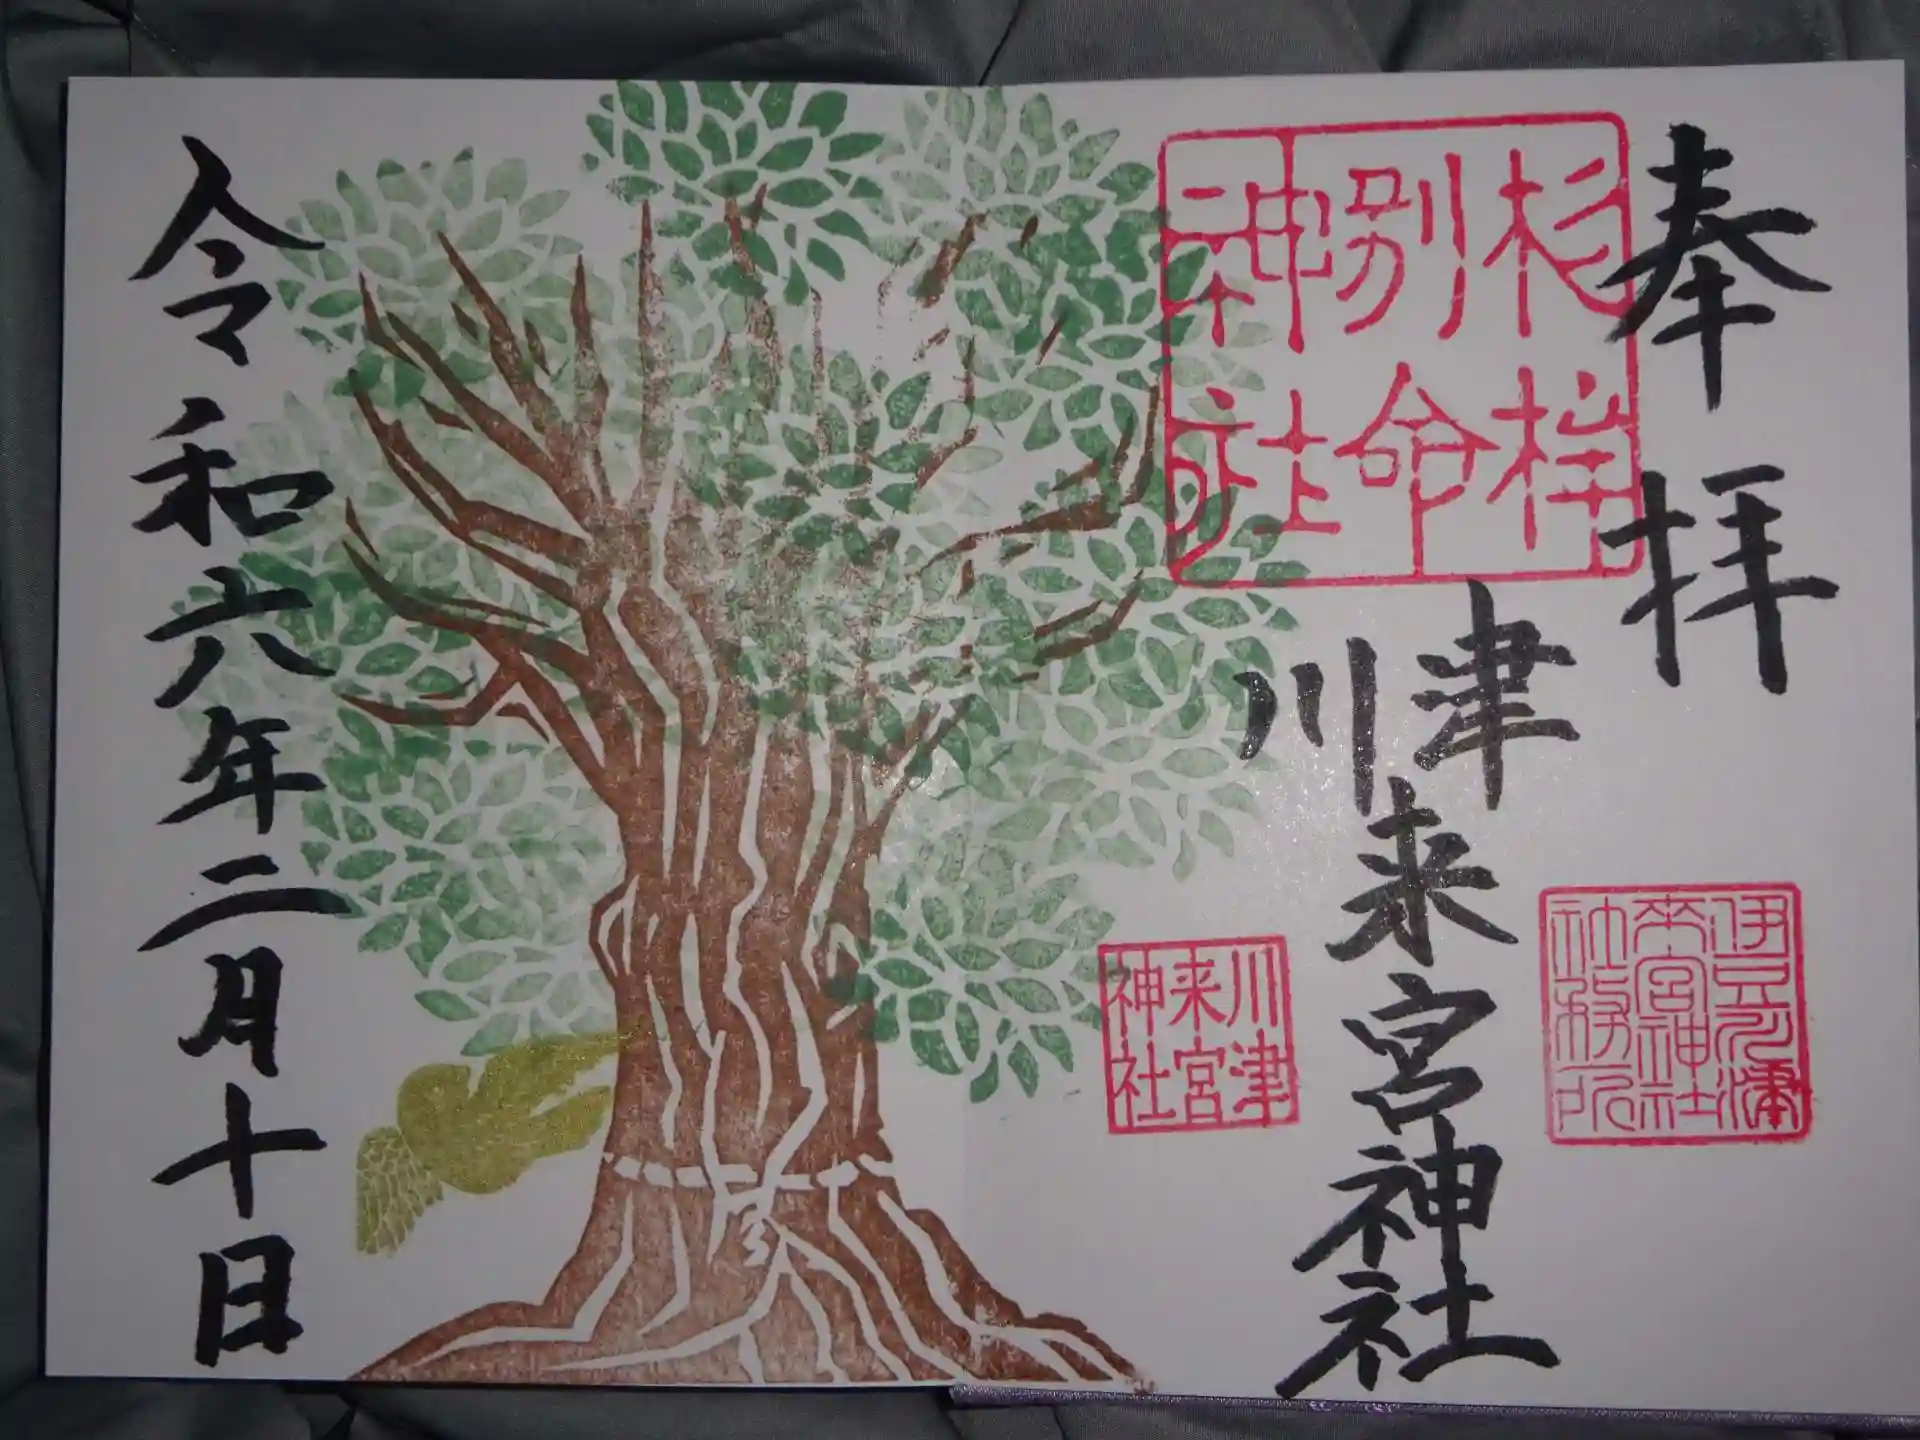 奉拝
杉桙
別命
神社
川津来宮神社
伊豆川津
来宮神社
社務所
川津
来宮
神社
令和六年二月十日